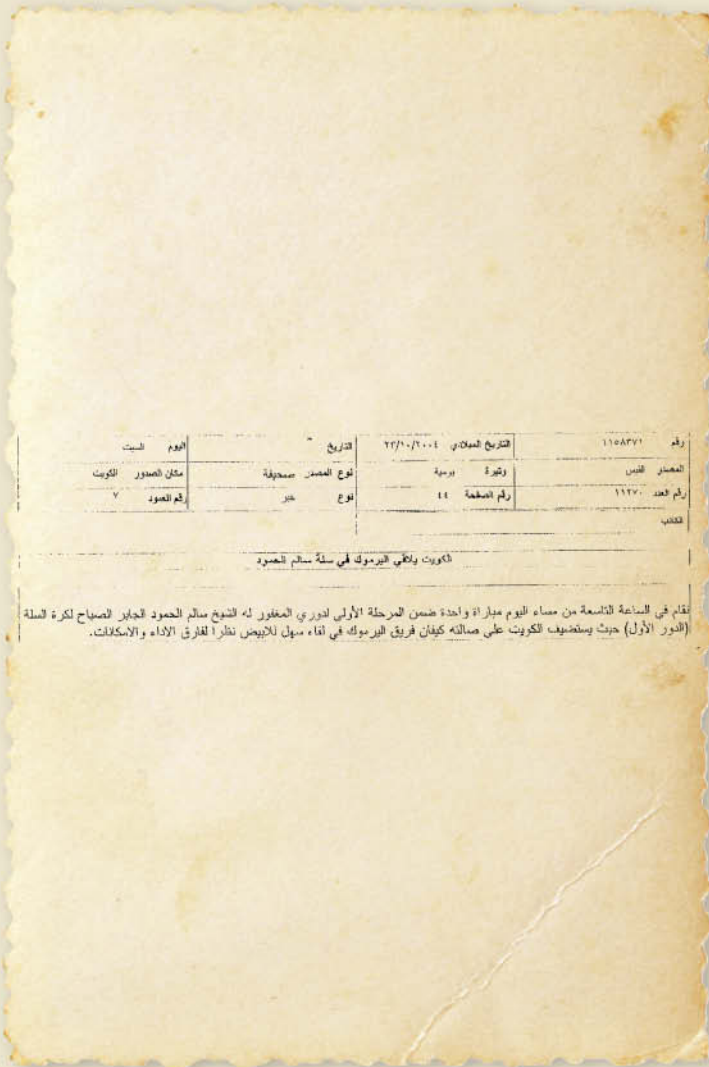 رقم ١١٥٨٣٧١ التاريخ الميلادي ٢٣/١٠/٢٠٠٤ التاريخ اليوم السبت
المصدر القبس وتيرة يومية نوع المصدر صحيفة مكان الصدور الكويت
رقم العدد ١١٢٧٠ رقم الصفحة ٤٤ نوع خبر رقم العمود ٧
الكاتب
الكويت يلاقي اليرموك في سلة سالم الحمود
تقام في الساعة التاسعة من مساء اليوم مباراة واحدة ضمن المرحلة الأولى لدوري المغفور له الشيخ سالم الحمود الجابر الصباح لكرة السلة
(الدور الأول) حيث يستضيف الكويت على صالته كيفان فريق اليرموك في لقاء سهل للابيض نظرا لفارق الاداء والامكانات.